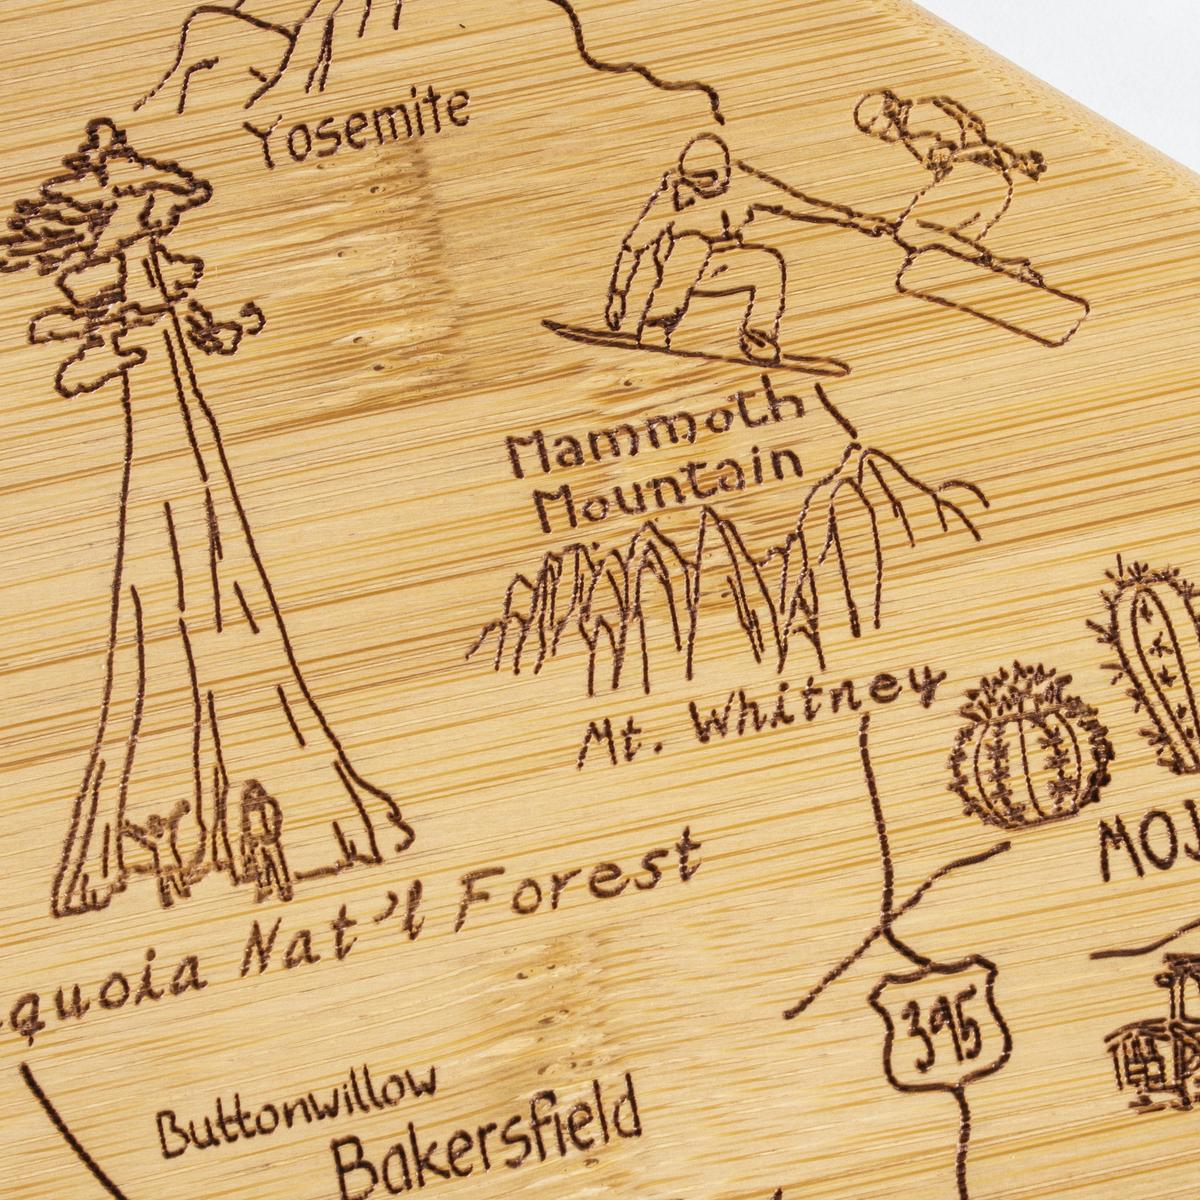 Yosemite
Mammoth
Mountain
Mt. Whitney
quoia Nat'l Forest
MOJ
395
Buttonwillow
Bakersfield